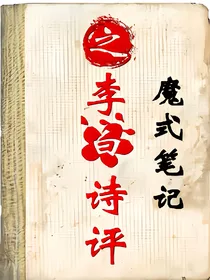 魔式笔记
之
李诗评